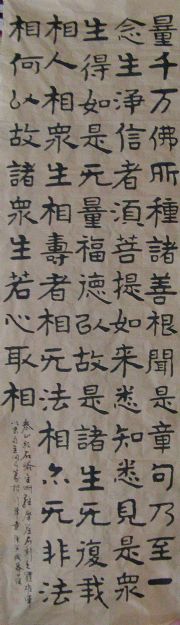 量千万佛所種諸善根聞是章句乃至一
念生净信者須菩提如来悉知悉見是衆
生得如是无量福德以故是諸生无復我
相人相衆生相壽者相无法相亦无非法
相何以故諸衆生若心取相